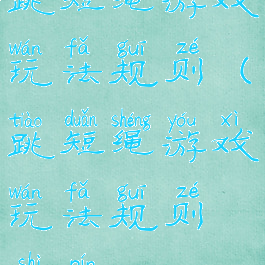 跳短绳游戏
wán fǎ guī zé
玩法规则（
tiào duǎn shéng yóu xì
跳短绳游戏
wán fǎ guī zé
玩法规则
shì pín